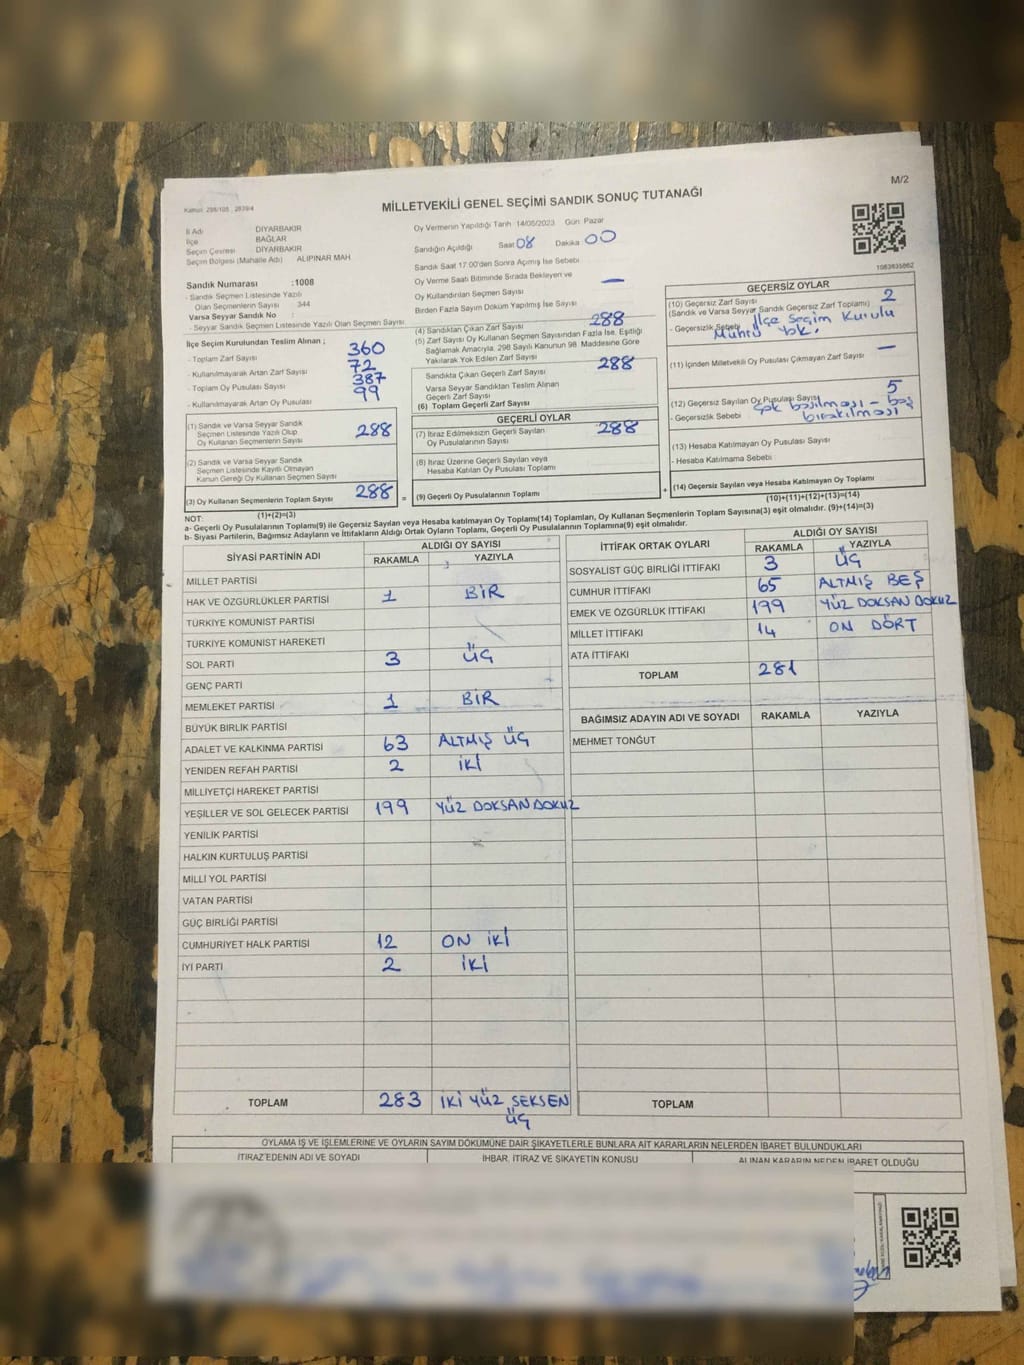 M/2
Kanun: 298/105 , 2839/4
MİLLETVEKİLİ GENEL SEÇİMİ SANDIK SONUÇ TUTANAĞI
İl Adı DİYARBAKIR
İlçe BAĞLAR
Seçim Çevresi DİYARBAKIR
Seçim Bölgesi (Mahalle Adı) ALIPINAR MAH.
Sandık Numarası :1008
- Sandık Seçmen Listesinde Yazılı
Olan Seçmenlerin Sayısı 344
Varsa Seyyar Sandık No :
- Seyyar Sandık Seçmen Listesinde Yazılı Olan Seçmen Sayısı
İlçe Seçim Kurulundan Teslim Alınan ;
- Toplam Zarf Sayısı 360
- Kullanılmayarak Artan Zarf Sayısı 72
- Toplam Oy Pusulası Sayısı 387
- Kullanılmayarak Artan Oy Pusulası 99
(1) Sandık ve Varsa Seyyar Sandık
Seçmen Listesinde Yazılı Olup
Oy Kullanan Seçmenlerin Sayısı 288
(2) Sandık ve Varsa Seyyar Sandık
Seçmen Listesinde Kayıtlı Olmayan
Kanun Gereği Oy Kullanan Seçmen Sayısı
(3) Oy Kullanan Seçmenlerin Toplam Sayısı 288 =
(1)+(2)=(3)
Oy Vermenin Yapıldığı Tarih 14/05/2023 Gün: Pazar
Sandığın Açıldığı Saat 08 Dakika 00
Sandık Saat 17.00'den Sonra Açılmış İse Sebebi
Oy Verme Saati Bitiminde Sırada Bekleyen ve
Oy Kullandırılan Seçmen Sayısı —
Birden Fazla Sayım Döküm Yapılmış İse Sayısı
(4) Sandıktan Çıkan Zarf Sayısı 288
(5) Zarf Sayısı Oy Kullanan Seçmen Sayısından Fazla İse, Eşitliği
Sağlamak Amacıyla, 298 Sayılı Kanunun 98. Maddesine Göre
Yakılarak Yok Edilen Zarf Sayısı
Sandıkta Çıkan Geçerli Zarf Sayısı 288
Varsa Seyyar Sandıktan Teslim Alınan
Geçerli Zarf Sayısı
(6) Toplam Geçerli Zarf Sayısı
GEÇERLİ OYLAR
(7) İtiraz Edilmeksizin Geçerli Sayılan
Oy Pusulalarının Sayısı 288
(8) İtiraz Üzerine Geçerli Sayılan veya
Hesaba Katılan Oy Pusulası Toplamı
(9) Geçerli Oy Pusulalarının Toplamı +
1083835862
GEÇERSİZ OYLAR
(10) Geçersiz Zarf Sayısı 2
(Sandık ve Varsa Seyyar Sandık Geçersiz Zarf Toplamı)
- Geçersizlik Sebebi İlçe Seçim Kurulu
Mührü Yok.
(11) İçinden Milletvekili Oy Pusulası Çıkmayan Zarf Sayısı —
(12) Geçersiz Sayılan Oy Pusulası Sayısı 5
- Geçersizlik Sebebi Çok basılması – boş
bırakılması
(13) Hesaba Katılmayan Oy Pusulası Sayısı
- Hesaba Katılmama Sebebi
(14) Geçersiz Sayılan veya Hesaba Katılmayan Oy Toplamı
(10)+(11)+(12)+(13)=(14)
NOT:
a- Geçerli Oy Pusulalarının Toplamı(9) ile Geçersiz Sayılan veya Hesaba katılmayan Oy Toplamı(14) Toplamları, Oy Kullanan Seçmenlerin Toplam Sayısına(3) eşit olmalıdır. (9)+(14)=(3)
b- Siyasi Partilerin, Bağımsız Adayların ve İttifakların Aldığı Ortak Oyların Toplamı, Geçerli Oy Pusulalarının Toplamına(9) eşit olmalıdır.
SİYASİ PARTİNİN ADI ALDIĞI OY SAYISI
RAKAMLA YAZIYLA
MİLLET PARTİSİ
HAK VE ÖZGÜRLÜKLER PARTİSİ 1 BİR
TÜRKİYE KOMÜNİST PARTİSİ
TÜRKİYE KOMÜNİST HAREKETİ
SOL PARTİ 3 ÜÇ
GENÇ PARTİ
MEMLEKET PARTİSİ 1 BİR
BÜYÜK BİRLİK PARTİSİ
ADALET VE KALKINMA PARTİSİ 63 ALTMIŞ ÜÇ
YENİDEN REFAH PARTİSİ 2 İKİ
MİLLİYETÇİ HAREKET PARTİSİ
YEŞİLLER VE SOL GELECEK PARTİSİ 199 YÜZ DOKSAN DOKUZ
YENİLİK PARTİSİ
HALKIN KURTULUŞ PARTİSİ
MİLLİ YOL PARTİSİ
VATAN PARTİSİ
GÜÇ BİRLİĞİ PARTİSİ
CUMHURİYET HALK PARTİSİ 12 ON İKİ
İYİ PARTİ 2 İKİ
TOPLAM 283 İKİ YÜZ SEKSEN
ÜÇ
İTTİFAK ORTAK OYLARI ALDIĞI OY SAYISI
RAKAMLA YAZIYLA
SOSYALİST GÜÇ BİRLİĞİ İTTİFAKI 3 ÜÇ
CUMHUR İTTİFAKI 65 ALTMIŞ BEŞ
EMEK VE ÖZGÜRLÜK İTTİFAKI 199 YÜZ DOKSAN DOKUZ
MİLLET İTTİFAKI 14 ON DÖRT
ATA İTTİFAKI
TOPLAM 281
BAĞIMSIZ ADAYIN ADI VE SOYADI RAKAMLA YAZIYLA
MEHMET TONĞUT
TOPLAM
OYLAMA İŞ VE İŞLEMLERİNE VE OYLARIN SAYIM DÖKÜMÜNE DAİR ŞİKAYETLERLE BUNLARA AİT KARARLARIN NELERDEN İBARET BULUNDUKLARI
İTİRAZ EDENİN ADI VE SOYADI İHBAR, İTİRAZ VE ŞİKAYETİN KONUSU ALINAN KARARIN NEDEN İBARET OLDUĞU